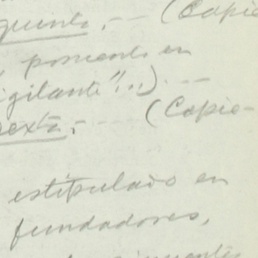 (Copie
, poniendo en
igilante"...). --
exta:- (Copie-
estipulado en
fundadores,